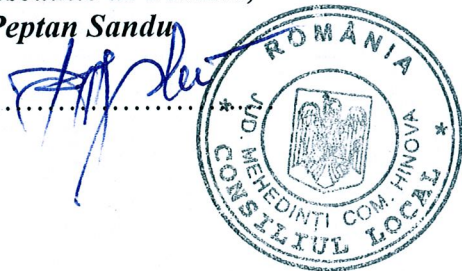 Peptan Sandu
ROMÂNIA
JUD. MEHEDINTI COM. HINOVA
CONSILIUL LOCAL